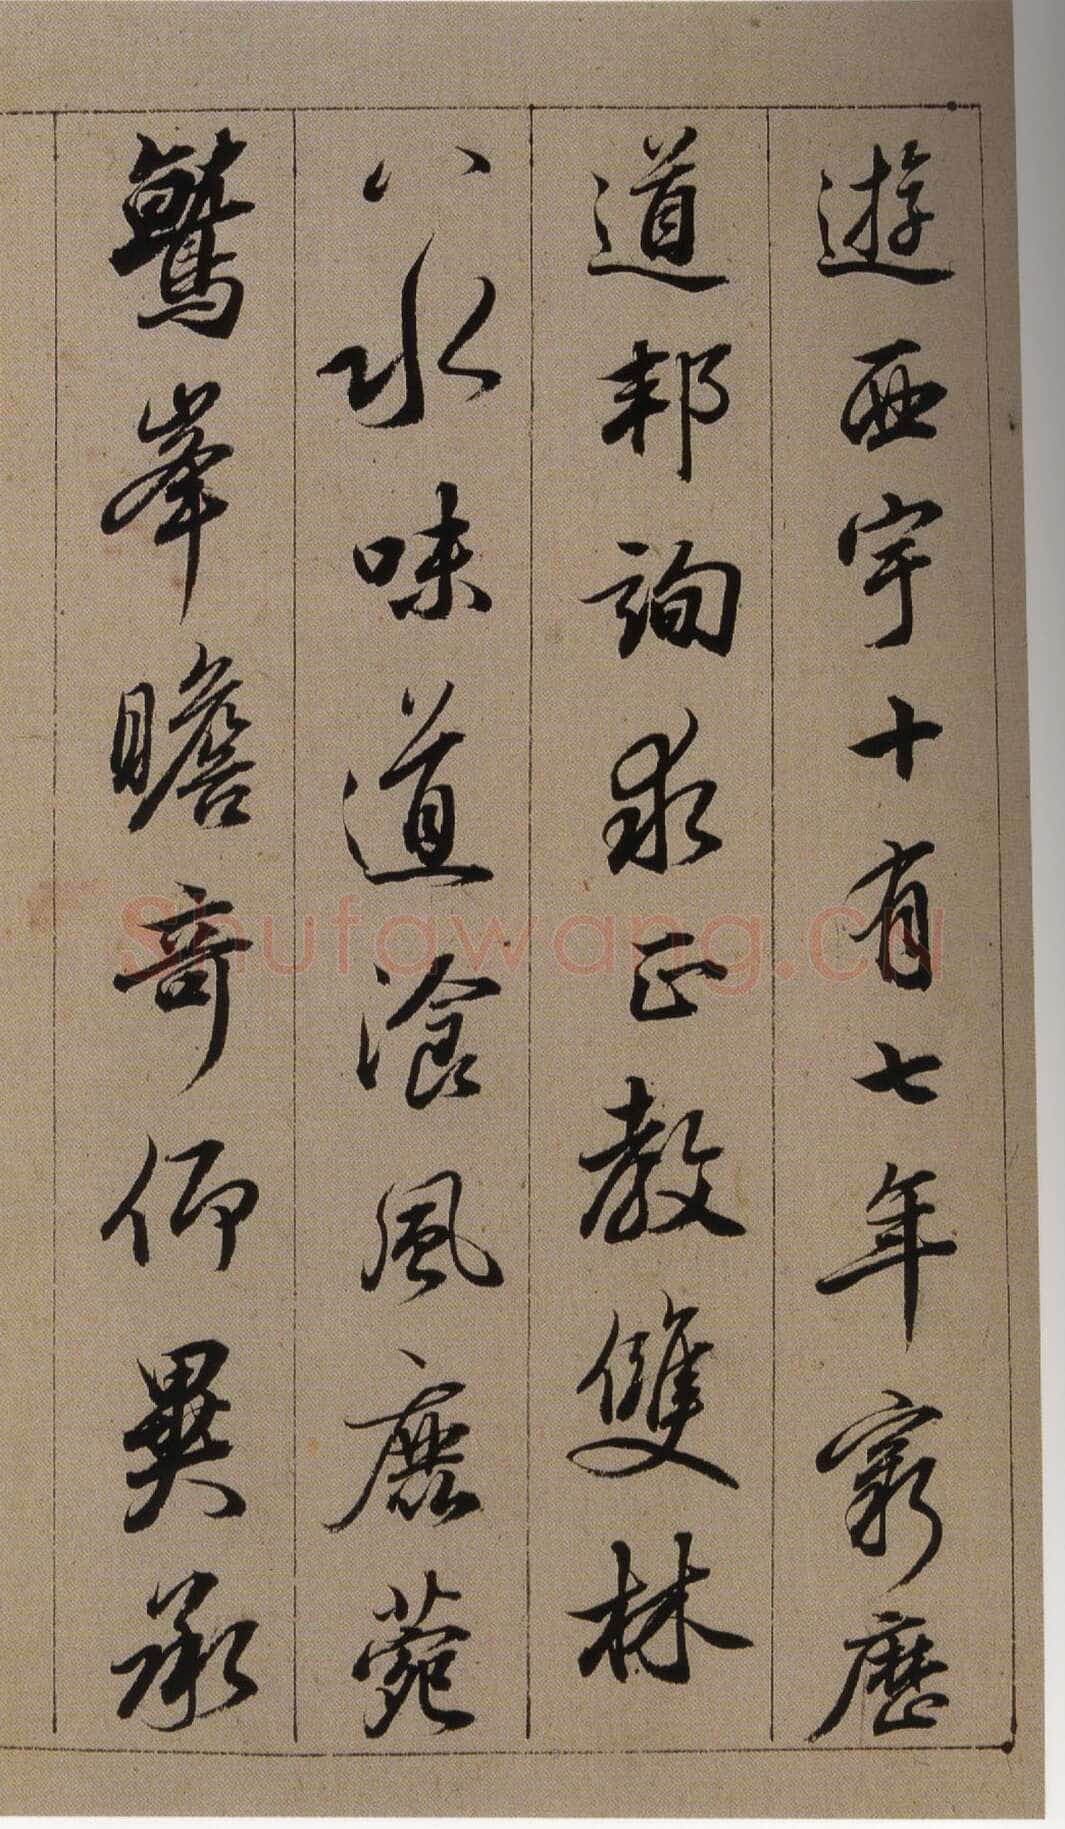 遊西宇十有七年窮歷
道邦詢求正教雙林
八水味道飡風鹿菀
鷲峯瞻奇仰異承
Shufawang.cn